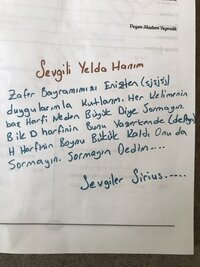 Pegem Akademi Yayıncılık
Sevgili Yelda Hanım
Zafer Bayramımızı Enişten (sjsjsj)
duygularımla Kutlarım. Her Kelimenin
baş Harfi Neden Büyük Diye Sormayın.
Bile D harfinin Bunu Yazarkende (değil)
H Harfinin Boynu Bükük Kaldı Onu da
Sormayın. Sormayın Dedim....
Sevgiler Sirius.....